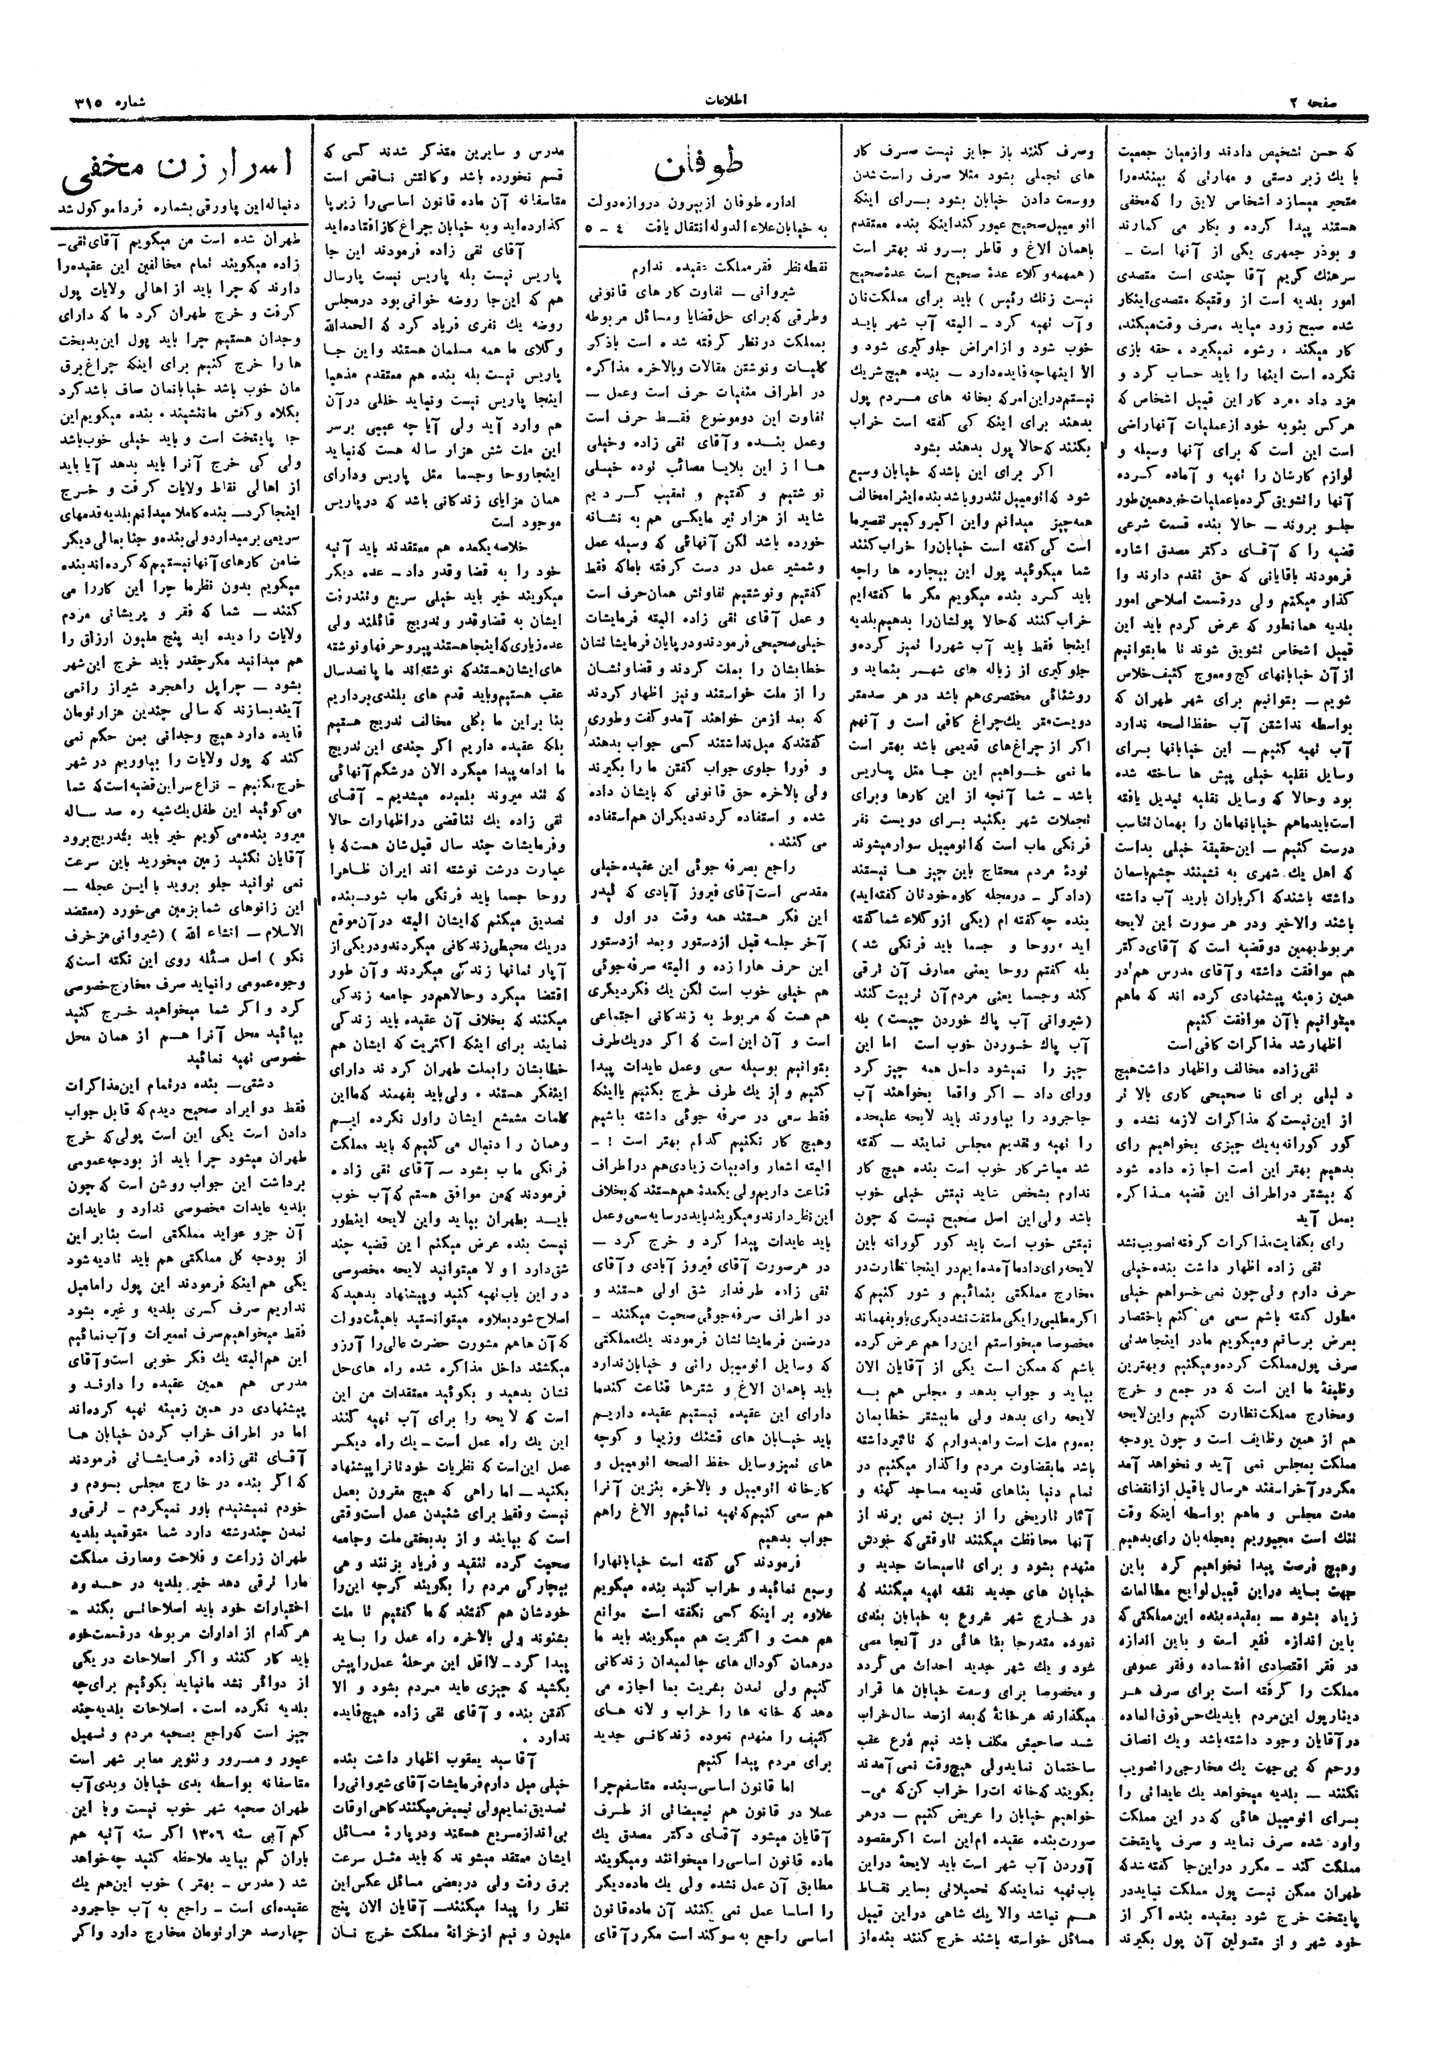 صفحه ۲
اطلاعات
شماره ۳۱۵
که حسن تشخیص دادند وازمیان جمعیت
با یك زبر دستی و مهارتی که بیننده را
متحیر میسازد اشخاص لایق را که مخفی
هستند پیدا کرده و بکار می کمارند
و بوذر جمهری یکی از آنها است –
سرهنك کریم آقا چندی است متصدی
امور بلدیه است از وقتیکه متصدی اینکار
شده صبح زود میاید ، صرف وقت میکند،
کار میکند ، رشوه نمیگیرد ، حقه بازی
نکرده است اینها را باید حساب کرد و
مزد داد ،
هرکس بنوبه خود از عملیات آنها راضی
است این است که برای آنها وسیله و
لوازم کارشان را تهیه و آماده کرده
آنها را تشویق کرده باعملیات خود همین طور
جلو بروند – حالا بنده قسمت شرعی
قضیه را که آقای دکتر مصدق اشاره
فرمودند باقایانی که حق تقدم دارند وا
گذار میکنم ولی درقسمت اصلاحی امور
بلدیه همانطور که عرض کردم باید این
قبیل اشخاص تشویق شوند تا ما بتوانیم
از آن خیابانهای کج و معوج کثیف خلاص
شویم – بتوانیم برای شهر طهران که
بواسطه نداشتن آب حفظ الصحه ندارد
آب تهیه کنیم – این خیابانها برای
وسایل نقلیه خیلی پیش ها ساخته شده
بود وحالا که وسایل نقلیه تبدیل یافته
است باید ماهم خیابانهامان را بهمان تناسب
درست کنیم – این حقیقة خیلی بداست
که اهل یك شهری به نشینند چشم باسمان
داشته باشند که اکر باران بارید آب داشته
باشند والاخیر ودر هر صورت این لایحه
مربوط بهمین دو قضیه است که آقای دکتر
هم موافقت داشته و آقای مدرس هم در
همین زمینه پیشنهادی کرده اند که ماهم
میتوانیم با آن موافقت کنیم
اظهار شد مذاکرات کافی است
تقی زاده مخالف واظهار داشت هیچ
دلیلی برای نا صحیحی کاری بالا تر
از این نیست که مذاکرات لازمه نشده و
کور کورانه به یك چیزی بخواهیم رای
بدهیم بهتر این است اجازه داده شود
که بیشتر در اطراف این قضیه مذاکره
بعمل آید
رای بکفایت مذاکرات گرفته تصویب نشد
تقی زاده اظهار داشت بنده خیلی
حرف دارم ولی چون نمی خواهم خیلی
مطول کفته باشم سعی می کنم باختصار
بعرض برسانم ومیکویم مادر اینجا مدتی
صرف پول مملکت کرده و میکنیم و بهترین
وظیفهٔ ما این است که در جمع و خرج
ومخارج مملکت نظارت کنیم واین لایحه
هم از همین وظایف است و چون بودجه
مملکت بمجلس نمی آید و نخواهد آمد
مکر در آخر اسفند هر سال یا قبل از انقضای
مدت مجلس و ماهم بواسطه اینکه وقت
تنك است مجبوریم بعجله بان رای بدهیم
وهیچ فرصت پیدا نخواهیم کرد باین
جهت بباید دراین قبیل لوایح مطالعات
زیاد بشود – بعقیده بنده این مملکتی که
باین اندازه فقیر است و باین اندازه
در فقر اقتصادی افتاده و فقر عمومی
مملکت را گرفته است برای صرف هر
دینار پول این مردم باید یك حس فوق العاده
در آقایان وجود داشته باشد ویك انصاف
ورحم که بی جهت یك مخارجی را تصویب
نکنند – بلدیه میخواهد یك عایداتی را
برای اتومبیل هائی که در این مملکت
وارد شده صرف نماید و صرف پایتخت
مملکت کند – مکرر در این جا کفته شد که
طهران ممکن نیست پول مملکت نباید در
پایتخت خرج شود بعقیده بنده اکر از
خود شهر و از متمولین آن پول بگیرند
وصرف کنند باز جایز نیست صرف کار
های تجملی بشود مثلا صرف راست شدن
ووسعت دادن خیابان بشود برای اینکه
اتومبیل صحیح عبور کند اینکه بنده معتقدم
باهمان الاغ و قاطر بروند بهتر است
( همهمه وکلاء عدهٔ صحیح است عدهٔ صحیح
نیست زنك رئیس ) باید برای مملکت نان
و آب تهیه کرد – البته آب شهر باید
خوب شود و از امراض جلوگیری شود و
الا اینها چه فایده دارد – بنده هیچ شریك
نیستم در این امر که بخانه های مردم پول
بدهند برای اینکه کی کفته است خراب
بکنند که حالا پول بدهند بشود
اکر برای این باشد که خیابان وسیع
شود که اتومبیل تندرو باشد بنده اینرا مخالف
همه چیز میدانم واین اکیر و کیر تقصیر ما
است کی کفته است خیابان را خراب کنند
شما میکوئید پول این بیچاره ها راچه
باید کرد بنده میکویم مکر ما کفته ایم
خراب کنند که حالا پولشان را بدهیم بلدیه
اینجا فقط باید آب شهر را تمیز کرده و
جلوگیری از زباله های شهر بنماید و
روشنائی مختصری هم باشد در هر صد متر
دویست متر یك چراغ کافی است و آنهم
اکر از چراغ های قدیمی باشد بهتر است
ما نمی خواهیم این جا مثل پاریس
باشد – شما آنچه از این کارها وبرای
تجملات شهر بکنید برای دویست نفر
فرنگی ماب است که اتومبیل سوار میشوند
تودهٔ مردم محتاج باین چیز ها نیستند
(دادگر – درمجله کاوه خودتان کفته اید)
بنده چه کفته ام (یکی از وکلاء شما کفته
اید ، روحا و جسما باید فرنگی شد )
بله کفتم روحا یعنی معارف آن ترقی
کند وجسما یعنی مردم آن تربیت کنند
(شیروانی آب پاك خوردن چیست ) بله
آب پاك خوردن خوب است اما این
چیز را نمیشود داخل همه چیز کرد
ورای داد – اکر واقعا بخواهند آب
جاجرود را بیاورند باید لایحه علیحده
را تهیه و تقدیم مجلس نمایند – کفته
شد مباشر کار خوب است بنده هیچ کار
ندارم بشخص شاید نیتش خیلی خوب
باشد ولی این اصل صحیح نیست که چون
نیتش خوب است باید کور کورانه باین
لایحه رای داد ما آمده ایم در اینجا نظارت در
مخارج مملکتی بنمائیم و شور کنیم که
اکر مطلبی را یکی ملتفت نشد دیگری باو بفهماند
مخصوصا میخواستم این را هم عرض کرده
باشم که ممکن است یکی از آقایان الان
بیاید و جواب بدهد و مجلس هم به
لایحه رای بدهد ولی ما بیشتر خطابمان
بعموم ملت است وامیدوارم که تاثیر داشته
باشد ما بقضاوت مردم واکذار میکنیم در
تمام دنیا بناهای قدیمه مساجد کهنه و
آثار تاریخی را از بین نمی برند از
آنها محافظت میکنند تا وقتی که خودش
منهدم بشود و برای تاسیسات جدید و
خیابان های جدید نقشه تهیه میکنند که
در خارج شهر شروع به خیابان بندی
نموده متدرجا بنا هائی در آنجا می
شود و یك شهر جدید احداث می گردد
و مخصوصا برای وسعت خیابان ها قرار
میکذارند هر خانهٔ که بعد از صد سال خراب
شد صاحبش مکلف باشد نیم ذرع عقب
ساختمان نماید ولی هیچوقت نمی آمدند
بکویند که خانه ات را خراب کن که می–
خواهیم خیابان را عریض کنیم – در هر
صورت بنده عقیده ام این است اکر مقصود
آوردن آب شهر است باید لایحهٔ در این
باب تهیه نمایند که تحمیلاتی بسایر نقاط
هم نباشد والا یك شاهی در این قبیل
مسائل خواسته باشند خرج کنند بنده از
طوفان
اداره طوفان از بیرون دروازه دولت
به خیابان علاء الدوله انتقال یافت ۴ – ۵
نقطه نظر فقر مملکت عقیده ندارم
شیروانی – تفاوت کار های قانونی
وطرقی که برای حل قضایا و مسائل مربوطه
بمملکت در نظر گرفته شده است با ذکر
کلیات و نوشتن مقالات وبالاخره مذاکره
در اطراف منفیات حرف است وعمل –
تفاوت این دو موضوع فقط حرف است
وعمل بنده و آقای تقی زاده وخیلی
ها از این بلایا مصائب توده خیلی
نوشتیم و کفتیم و تعقیب کردیم
شاید از هزار تیر مایکی هم به نشانه
خورده باشد لکن آنهائی که وسیله عمل
وشمشیر عمل در دست گرفته باما که فقط
کفتیم و نوشتیم تفاوتش همان حرف است
و عمل آقای تقی زاده البته فرمایشات
خیلی صحیحی فرمودند و در پایان فرمایشاتشان
خطابشان را بملت کردند و قضاوتشان
را از ملت خواستند و نیز اظهار کردند
که بعد از من خواهند آمد و کفت وطوری
کفتند که میل نداشتند کسی جواب بدهند
و فورا جلوی جواب کفتن ما را بگیرند
ولی بالاخره حق قانونی که بایشان داده
شده و استفاده کردند دیگران هم استفاده
می کنند ،
راجع بصرفه جوئی این عقیده خیلی
مقدسی است آقای فیروز آبادی که لیدر
این فکر هستند همه وقت در اول و
آخر جلسه قبل از دستور وبعد از دستور
این حرف هارا زده و البته صرفه جوئی
هم خیلی خوب است لکن یك فکر دیگری
هم هست که مربوط به زندکانی اجتماعی
است و آن این است که اکر در یك طرف
بتوانیم بوسیله سعی وعمل عایدات پیدا
کنیم و از یك طرف خرج بکنیم یا اینکه
فقط سعی در صرفه جوئی داشته باشیم
وهیچ کار نکنیم کدام بهتر است ! –
البته اشعار و ادبیات زیادی هم در اطراف
قناعت داریم ولی یکعده هم هستند که بخلاف
این نظر دارند و میکویند باید در سایه سعی وعمل
باید عایدات پیدا کرد و خرج کرد –
در هر صورت آقای فیروز آبادی و آقای
تقی زاده طرفدار شق اولی هستند و
در اطراف صرفه جوئی صحبت میکنند –
درضمن فرمایشاتشان فرمودند یك مملکتی
که وسایل اتومبیل رانی و خیابان ندارد
باید باهمان الاغ و شترها قناعت کند ما
دارای این عقیده نیستیم عقیده داریم
باید خیابان های قشنك وزیبا و کوچه
های تمیز وسایل حفظ الصحه اتومبیل و
کارخانه اتومبیل و بالاخره بنزین آنرا
هم سعی کنیم که تهیه نمائیم و الاغ راهم
جواب بدهیم
فرمودند کی کفته است خیابانها را
وسیع نمائید و خراب کنید بنده میکویم
علاوه بر اینکه کسی نگفته است موانع
هم هست و اکثریت هم میکویند باید ما
درهمان گودال های چالمیدان زندکانی
کنیم ولی تمدن بشریت بما اجازه می
دهد که خانه ها را خراب و لانه های
کثیف را منهدم نموده زندکانی جدید
برای مردم پیدا کنیم
اما قانون اساسی– بنده متاسفم چرا
عملا در قانون هم تبعیضاتی از طرف
آقایان میشود آقای دکتر مصدق یك
ماده قانون اساسی را میخوانند ومیکویند
مطابق آن عمل نشده ولی یك ماده دیگر
را اساسا عمل نمی کنند آن ماده قانون
اساسی راجع به سوکند است مکرر آقای
مدرس و سایرین متذکر شدند کسی که
قسم نخورده باشد وکالتش ناقص است
متاسفانه آن ماده قانون اساسی را زیر پا
کذارده اید و به خیابان چراغ گاز افتاده اید
آقای تقی زاده فرمودند این جا
پاریس نیست بله پاریس نیست پارسال
هم که این جا روضه خوانی بود در مجلس
روضه یك نفری فریاد کرد که الحمدالله
وکلای ما همه مسلمان هستند واین جا
پاریس نیست بله بنده هم معتقدم مذهبا
اینجا پاریس نیست ونباید خللی در آن
هم وارد آید ولی آیا چه عیبی بر سر
این ملت شش هزار ساله هست که نباید
اینجا روحا وجسما مثل پاریس ودارای
همان مزایای زندکانی باشد که در پاریس
موجود است
خلاصه یکعده هم معتقدند باید آتیه
خود را به قضا وقدر داد – عده دیگر
میکویند خیر باید خیلی سریع وتند رفت
ایشان به قضا وقدر و تدریج قائلند ولی
عده زیاری که اینجا هستند پیرو حرفها و نوشته
های ایشان هستند که نوشته اند ما پانصد سال
عقب هستیم وباید قدم های بلندی برداریم
بنا بر این ما بکلی مخالف تدریج هستیم
بلکه عقیده داریم اکر چندی این تدریج
ما ادامه پیدا میکرد الان در شکم آنهائی
که تند میروند بلعیده میشدیم – آقای
تقی زاده یك تناقضی در اظهارات حالا
وفرمایشات چند سال قبل شان هست که با
عبارت درشت نوشته اند ایران ظاهرا
روحا جسما باید فرنگی ماب شود – بنده
تصدیق میکنم که ایشان البته در آن موقع
در یك محیطی زندکانی میکردند و در یکی از
آپار تمانها زندکی میکردند و آن طور
اقتضا میکرد و حالا هم در جامعه زندکی
میکنند که بخلاف آن عقیده باید زندکی
نمایند برای اینکه اکثریت که ایشان هم
خطابشان را بملت طهران کردند دارای
اینفکر هستند ، ولی باید بفهمند که ما این
کلمات مشعشع ایشان راول نکرده ایم
وهمان را دنبال می کنیم که باید مملکت
فرنگی ماب بشود – آقای تقی زاده
فرمودند که من موافق هستم که آب خوب
باید بطهران بیاید واین لایحه اینطور
نیست بنده عرض میکنم این قضیه چند
شق دارد اولا میتوانید لایحه مخصوصی
در این باب تهیه کنید و پیشنهاد بدهید که
اصلاح شود بعلاوه میتوانستید باهیئت دولت
که آن ها هم مشورت حضرت عالی را آرزو
میکشند داخل مذاکره شده راه های حل
نشان بدهید و بکوئید معتقدات من این
است که لایحه را برای آب تهیه کنند
این یك راه عمل است – یك راه دیگر
عمل این است که نظریات خودتان را پیشنهاد
بکنید – اما راهی که هیچ مقرون بعمل
نیست وفقط برای شنیدن عمل است وقتی
است که بیایند و از بدبختی ملت وجامعه
صحبت کرده تنقید و فریاد بزنند و هی
بیچارگی مردم را بکویند گرچه این را
خودشان هم کفتند که ما کفتیم تا ملت
بشنوند ولی بالاخره راه عمل را بباید
پیدا کرد – لااقل این مرحلهٔ عمل را پیش
بکشید که چیزی عاید مردم بشود و الا
کفتن بنده و آقای تقی زاده هیچ فایده
ندارد .
آقا سید یعقوب اظهار داشت بنده
خیلی میل دارم فرمایشات آقای شیروانی را
تصدیق نمایم ولی تبعیض میکنند کاهی اوقات
بی اندازه سریع هستند و در بارهٔ مسائل
ایشان معتقد میشوند که باید مثل سرعت
برق رفت ولی در بعضی مسائل عکس این
نظر را پیدا میکنند– آقایان الان پنج
ملیون و نیم از خزانهٔ مملکت خرج نان
اسرار زن مخفی
دنباله این پاورقی بشماره فردا موکول شد
طهران شده است من میکویم آقای تقی–
زاده میکویند تمام مخالفین این عقیده را
دارند که چرا باید از اهالی ولایات پول
گرفت و خرج طهران کرد ما که دارای
وجدان هستیم چرا باید پول این بدبخت
ها را خرج کنیم برای اینکه چراغ برق
مان خوب باشد خیابانمان صاف باشد کرد
بکلاه و کفش ما ننشیند ، بنده میکویم این
جا پایتخت است و باید خیلی خوب باشد
ولی کی خرج آنرا باید بدهد آیا باید
از اهالی نقاط ولایات گرفت و خرج
اینجا کرد– بنده کاملا میدانم بلدیه قدمهای
سریعی بر میدارد ولی بنده و جنابعالی دیگر
ضامن کارهای آنها نیستیم که کرده اند بنده
میکویم بدون نظر ما چرا این کار را می
کنند – شما که فقر و پریشانی مردم
ولایات را دیده اید پنج ملیون ارزاق را
هم میدانید مکر چقدر باید خرج این شهر
بشود – چرا پل راهجرد شیراز را نمی
آیند بسازند که سالی چندین هزار تومان
فایده دارد هیچ وجدانی بمن حکم نمی
کند که پول ولایات را بیاوریم در شهر
خرج بکنیم – نزاع سر این قضیه است که شما
می کوئید این طفل یك شبه ره صد ساله
میرود بنده می کویم خیر باید بتدریج برود
آقایان نکنید زمین میخورید باین سرعت
نمی توانید جلو بروید با این عجله –
این زانوهای شما بزمین می خورد (معتضد
الاسلام – انشاء الله ) (شیروانی مزخرف
نکو ) اصل مسئله روی این نکته است که
وجوه عمومی را نباید صرف مخارج خصوصی
کرد و اکر شما میخواهید خرج کنید
بیائید محل آنرا هم از همان محل
خصوصی تهیه نمائید
دشتی– بنده در تمام این مذاکرات
فقط دو ایراد صحیح دیدم که قابل جواب
دادن است یکی این است پولی که خرج
طهران میشود چرا باید از بودجه عمومی
برداشت این جواب روشن است که چون
بلدیه عایدات مخصوصی ندارد و عایدات
آن جزو عواید مملکتی است بنابر این
از بودجه کل مملکتی هم باید تادیه شود
یکی هم اینکه فرمودند این پول را ما میل
نداریم صرف کسری بلدیه و غیره بشود
فقط میخواهیم صرف تعمیرات و آب نمائیم
این هم البته یك فکر خوبی است و آقای
مدرس هم همین عقیده را دارند و
پیشنهادی در همین زمینه تهیه کرده اند
اما در اطراف خراب کردن خیابان ها
آقای تقی زاده فرمایشاتی فرمودند
که اکر بنده در خارج مجلس بودم و
خودم نمیشنیدم باور نمیکردم – ترقی و
تمدن چند رشته دارد شما متوقعید بلدیه
طهران زراعت و فلاحت ومعارف مملکت
مارا ترقی دهد خیر بلدیه در حدود
اختیارات خود باید اصلاحاتی بکند –
هر کدام از ادارات مربوطه در قسمت خود
باید کار کنند و اکر اصلاحات در یکی
از دوائر نشد ما نباید بکوئیم برای چه
بلدیه نکرده است . اصلاحات بلدیه چند
چیز است که راجع بصحیه مردم و تسهیل
عبور و مرور و تنویر معابر شهر است
متاسفانه بواسطه بدی خیابان و بدی آب
طهران صحیه شهر خوب نیست و با این
کم آبی سنه ۱۳۰۶ اکر سنه آتیه هم
باران کم بیاید ملاحظه کنید چه خواهد
شد ( مدرس – بهتر ) خوب این هم یك
عقیده ای است – راجع به آب جاجرود
چهارصد هزار تومان مخارج دارد و اکر